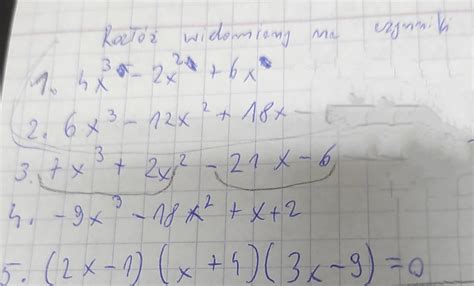 Rozłóż widomiany na czynniki
1. 4x³ - 2x² + 6x
2. 6x³ - 12x² + 18x -
3. 7x³ + 2x² - 21x - 6
4. -9x³ - 18x² + x + 2
5. (2x - 1) (x + 4) (3x - 9) = 0